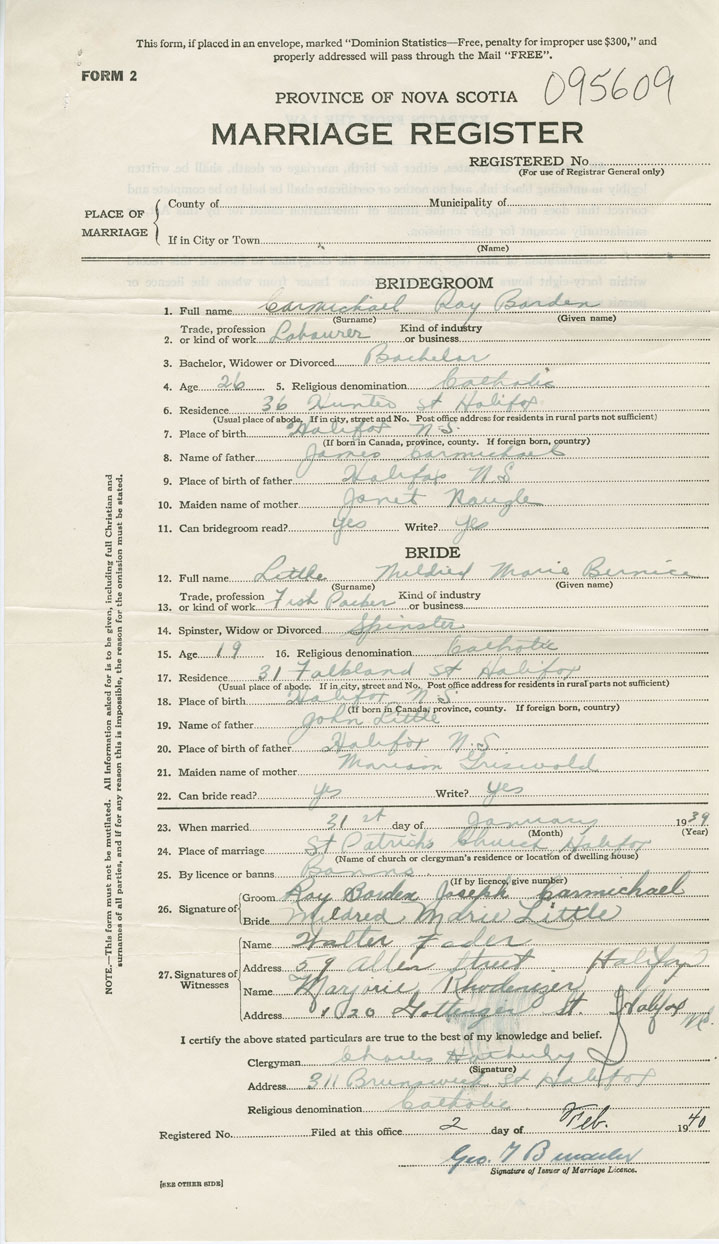 This form, if placed in an envelope, marked "Dominion Statistics—Free, penalty for improper use $300," and
properly addressed will pass through the Mail "FREE".
FORM 2
095609
PROVINCE OF NOVA SCOTIA
MARRIAGE REGISTER
REGISTERED No.
(For use of Registrar General only)
PLACE OF MARRIAGE
County of Municipality of
If in City or Town
(Name)
BRIDEGROOM
1. Full name Carmichael Roy Borden
(Surname) (Given name)
Trade, profession Kind of industry
2. or kind of work Labourer or business
3. Bachelor, Widower or Divorced Bachelor
4. Age 26 5. Religious denomination Catholic
6. Residence 36 Hunter St Halifax
(Usual place of abode. If in city, street and No. Post office address for residents in rural parts not sufficient)
7. Place of birth Halifax N.S.
(If born in Canada, province, county. If foreign born, country)
8. Name of father James Carmichael
9. Place of birth of father Halifax N S
10. Maiden name of mother Janet Naugle
11. Can bridegroom read? yes Write? yes
BRIDE
12. Full name Little Mildred Marie Bernice
(Surname) (Given name)
Trade, profession Kind of industry
13. or kind of work Fish Packer or business
14. Spinster, Widow or Divorced Spinster
15. Age 19 16. Religious denomination Catholic
17. Residence 31 Falkland St Halifax
(Usual place of abode. If in city, street and No. Post office address for residents in rural parts not sufficient)
18. Place of birth Halifax N.S.
(If born in Canada, province, county. If foreign born, country)
19. Name of father John Little
20. Place of birth of father Halifax N.S.
21. Maiden name of mother Mariam Griswold
22. Can bride read? yes Write? yes
23. When married 31st day of January 1939
(Month) (Year)
24. Place of marriage St Patricks Church Halifax
(Name of church or clergyman's residence or location of dwelling house)
25. By licence or banns Banns
(If by licence, give number)
26. Signature of
Groom Roy Borden Joseph Carmichael
Bride Mildred Marie Little
27. Signatures of Witnesses
Name Walter Fader
Address 59 Allen Street. Halifax
Name Marjorie Rhodenizer
Address 1020 Gottingen St. Halifax
I certify the above stated particulars are true to the best of my knowledge and belief.
Clergyman Charles
(Signature)
Address 311 Brunswick St Halifax
Religious denomination Catholic
Registered No. Filed at this office 2 day of Feb. 1940
Geo.
Signature of Issuer of Marriage Licence.
[SEE OTHER SIDE]
NOTE.—This form must not be mutilated. All Information asked for is to be given, including full Christian and
surnames of all parties, and if for any reason this is impossible, the reason for the omission must be stated.